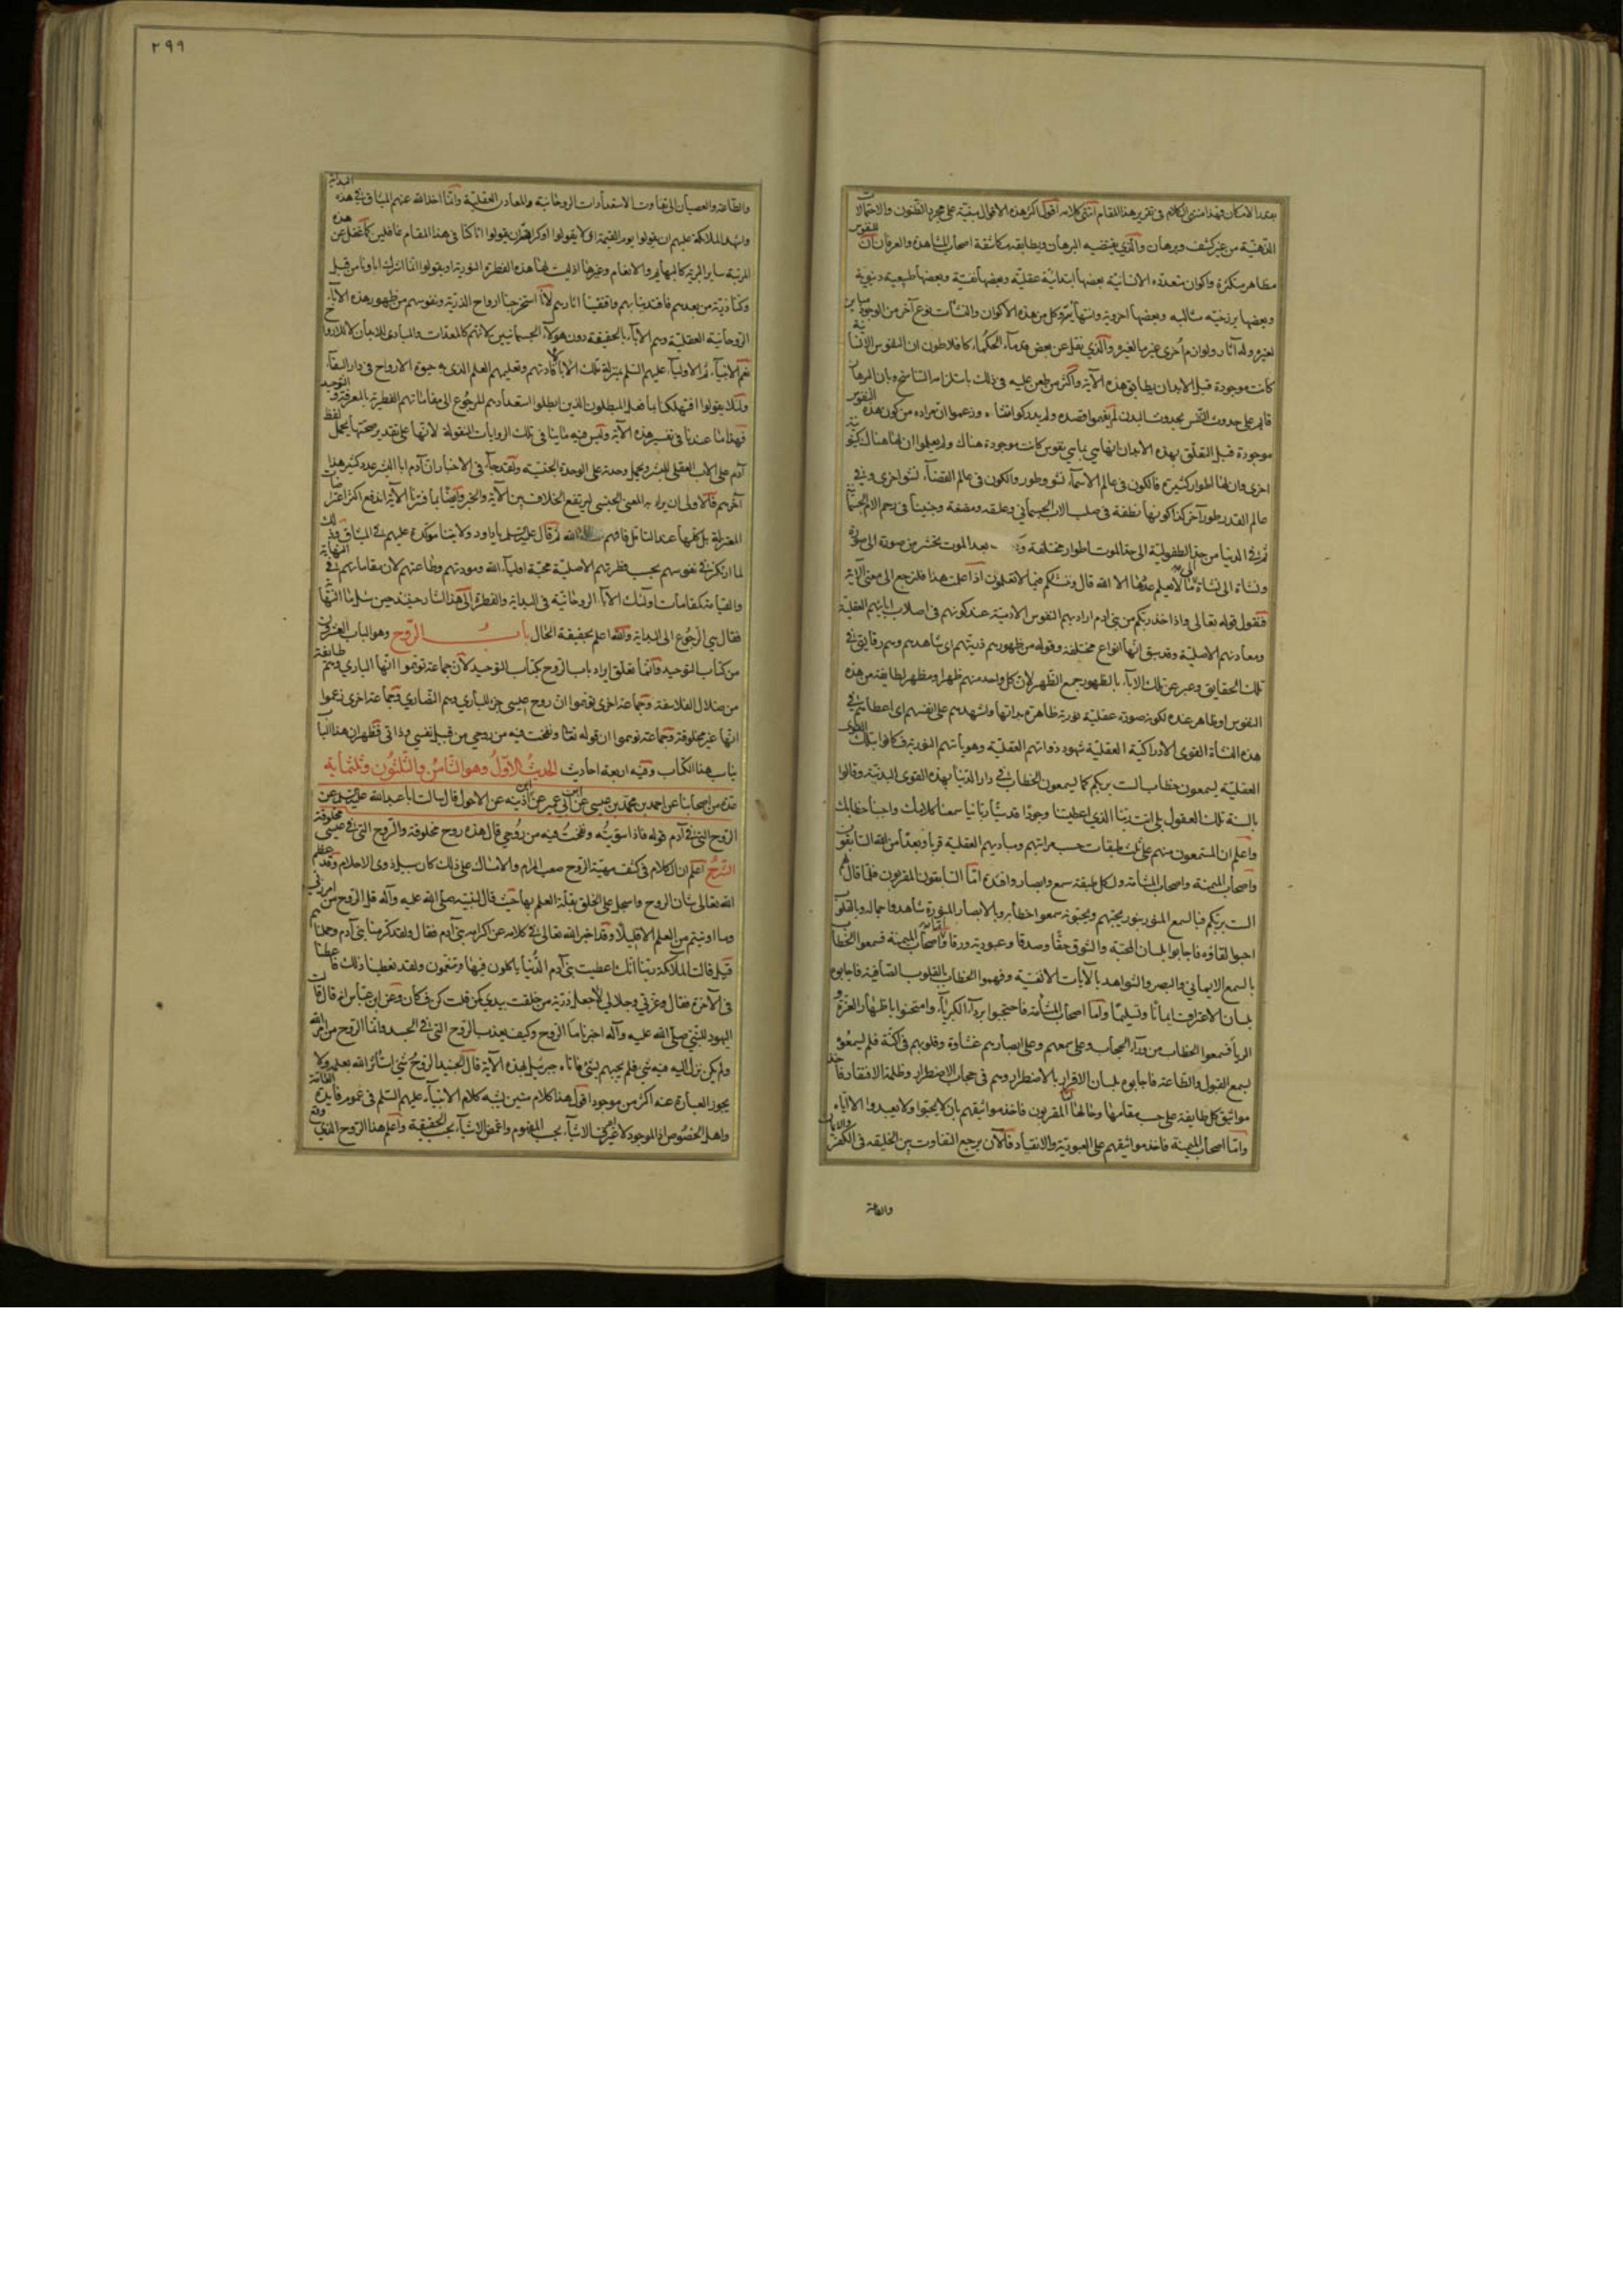 بعتد الامكان فهذا منتهى الكلام فى تقرير هذا المقام انتهى كلامه اقول اكثر هذه الاقوال مبنية على مجرد الظنون والاحتمالات
الذهنية من غير كشف وبرهان والذي يقتضيه البرهان ويطابقه مكاشفة اصحاب المشاهدة والعرفان ان للنفوس
مظاهر متكثرة واكوان متعددة الانسانية بعضها ابتدائية عقلية وبعضها نفسية وبعضها طبيعية دنيوية
وبعضها برزخية مثالية وبعضها اخروية وانتهائية وكل من هذه الاكوان والنشأت نوع آخر من الوجود مباين
لغيره وله آثار ولوازم اخرى غير ما لغيره والذي نقل عن بعض قدماء الحكماء كافلاطون ان النفوس الانسانية
كانت موجودة قبل الابدان يطابق هذه الآية واكثر من طعن عليه فى ذلك باستلزامه التناسخ وبان البرهان
قايم على حدوث النفس بحدوث البدن لم يفهموا قصده ولم يدركوا وزعموا ان مراده من كون هذه النفوس
موجودة قبل التعلق بهذه الابدان انها هي بما هي نفوس كانت موجودة هناك ولم يعلموا ان لها هناك كينونة
اخرى وان لها اطوار كثيرة فالكون فى عالم الاسماء نشو وطور والكون فى عالم القضاء نشو اخرى وفي
عالم القدر طور آخر كذا كونها نطفة فى صلب الاب الجسماني وعلقه ومضغة وجنينا فى رحم الام الجسمانية
ثم في الدنيا من حد الطفولية الى حد الموت اطوار مختلفة بعد الموت يحشر من صورة الى صورة
ونشاة الى نشاة الى ما لا يعلم عدّها الا الله قال وننشئكم فيما لا تعلمون اذا علمت هذا فلنرجع الى معنى الآية
فنقول قوله تعالى واذا اخذ ربكم من بني ادم اراد بهم النفوس الادمية عند كونهم فى اصلاب ابائهم العقلية
ومعادنهم الاصلية وقد سبق انها انواع مختلفة وقوله من ظهورهم ذريتهم اى شاهدهم وهم رقايق في
تلك الحقايق وعبر عن تلك الآباء بالظهور جمع الظهر لان كل واحد منهم ظهر او مظهر لطايفة من هذه
النفوس او ظاهر عنده لكونه صورة عقلية نورية ظاهرة بذاتها واشهدهم على انفسهم اى اعطاهم في
هذه النشاة القوى الادراكية العقلية شهود ذواتهم العقلية وهوياتهم النورية فكانوا بتلك القوى
العقلية يسمعون خطاب الست بربكم كما يسمعون الخطاب في دار الدنيا بهذه القوى البدنية وقالوا
بالسنة تلك العقول بلى انت ربنا الذي اعطيتنا وجودا قدسيا ربانيا سمعنا كلامك واجبنا خطابك
واعلم ان المستمعون منهم على ثلث طبقات حسب مراتبهم ومباديهم العقلية قربا وبعدا من الله السابقون
واصحاب الميمنة واصحاب المشأمة ولكل طبقة سمع وابصار وافئدة اما السابقون المقربون فلما قال لهم
الست بربكم فبالسمع المنور بنور يحبهم ويحبونه سمعوا خطابه وبالابصار المنورة شاهدوا جماله وبالقلوب
احبوا لقاؤه فاجابوا بلسان المحبة والشوق حقا وصدقا وعبودية ورقا واما اصحاب الميمنة فسمعوا الخطاب
بالسمع الايماني والبصر والشواهد بالآيات الافقية وفهموا الخطاب بالقلوب الصافية فاجابوه
بلسان الاعتراف ايمانا وتسليما واما اصحاب المشأمة فاحتجبوا برداء الكبرياء وامتحنوا باظهار العزة و
الريا فسمعوا الخطاب من وراء الحجاب وعلى سمعهم وعلى ابصارهم غشاوة وقلوبهم فى اكنة فلم يسمعوا
بسمع القبول والطاعة فاجابوه بلسان الاقرار بالاضطرار وهم فى حجاب الاضطرار وظلمة الافتقار فاخذ
مواثيق كل طايفة على حسب مقامها وحالها اما المقربون فاخذ مواثيقهم بان لا يحبوا ولا يعبدوا الا اياه
واما اصحاب الميمنة فاخذ مواثيقهم على العبودية والانقياد فالآن يرجع التفاوت بين الخليقة فى الكفر والايمان
والطاعة
٢٩٩
والطاعة والعصيان الى تفاوت الاستعدادات الروحانية والمعادن العقلية وانما اخذ الله عنهم الميثاق في هذه البداية
واشهد الملائكة عليهم ان يقولوا يوم القيمة اى لا يقولوا او كراهة ان يقولوا انا كنا فى هذا المقام غافلين كما غفل عن هذه
المرتبة ساير البرية كالبهايم والانعام وغيرها اذ ليست لها هذه الفطرة النورية او يقولوا انما اشرك اباؤنا من قبل
وكنا ذرية من بعدهم فاقتدينا بهم واقتفينا اثارهم لانا استخرجنا ارواح الذرية ونفوسهم من ظهور هذه الآباء
الروحانية العقلية وهم الآباء بالحقيقة دون هولاء الجسمانيين لانهم كالمعدات والمبادى للابدان لا للارواح
نعم الانبياء ثم الاولياء عليهم السلم بمنزلة تلك الآباء لافادتهم وتعليمهم العلم الذى به حيوة الارواح فى دار البقاء
ولئلا يقولوا افتهلكنا بما فعل المبطلون الذين ابطلوا استعدادهم للرجوع الى مقاماتهم الفطرية بالمعرفة والتوحيد
فهذا ما عندنا فى تفسير هذه الآية وليس فيه ما ينافى تلك الروايات المنقولة لانها على تقدير صحتها يحمل لفظ
آدم على الاب العقلى للبشر ويحمل وحدته على الوحدة الجنسية ولقد جاء فى الاخبار ان آدم ابا البشر عدد كثير هذا
آخرهم فالاولى ان يراد به المعنى الجنسى ليرتفع الخلاف بين الآية والخبر وايضا بما فسرنا الآية اندفع اكثر اعتراضات
المعتزلة بل كلها عند التامل فافهم الله ثم قال عليه السلم يا داود ولايتنا مؤكدة عليهم في الميثاق وذلك
لما ارتكز في نفوسهم بحسب فطرتهم الاصلية محبة اولياء الله ومودتهم وطاعتهم لان مقاماتهم في النهاية
والقيامة كمقامات اولئك الآباء الروحانية فى البداية والفطرة الى هذا اشار حيث حين سئل ما النهاية
فقال هي الرجوع الى البداية والله اعلم بحقيقة الحال باب الروح وهو الباب العشرون
من كتاب التوحيد وانما تعلق ايراد باب الروح بكتاب التوحيد لان جماعة توهموا انها الباري وهم طايفة
من ضلال الفلاسفة وجماعة اخرى توهموا ان روح عيسى جزء للباري وهم النصاري وجماعة اخرى زعموا
انها غير مخلوقة وجماعة توهموا ان قوله تعالى ونفخت فيه من روحي من قبل نفسي وذاتى فظهر ان هذا الباب
يناسب هذا الكتاب وفيه اربعة احاديث الحديث الاول وهو الثامن والثلثون وثلثمائة
عدة من اصحابنا عن احمد بن محمد بن عيسى عن ابن ابي عمير عن ابن اذينه عن الاحول قال سالت ابا عبد الله عليه السلم عن
الروح التى في آدم قوله فاذا سويته ونفخت فيه من روحي قال هذه روح مخلوقة والروح التى في عيسى مخلوقة
الشرح اعلم ان الكلام فى كشف مهية الروح صعب المرام والامساك على ذلك كان سبيل ذوى الاحلام وقد عظم
الله تعالى شان الروح واسجل على الخلق بقلة العلم بها حيث قال لنبيه صلى الله عليه وآله قل الروح من امر ربي
وما اوتيتم من العلم الا قليلا وقد اخبر الله تعالى في كلامه عن اكرامه بنى آدم فقال ولقد كرمنا بنى آدم وحملناهم
قيل قالت الملائكة ربنا انك اعطيت بنى آدم الدنيا ياكلون فيها ويتنعمون ولم تعطنا ذلك فاعطنا
فى الآخرة فقال وعزتي وجلالي لا اجعل ذرية من خلقت بيدي كمن قلت كن فكان وعن ابن عباس انه قال قالت
اليهود للنبي صلى الله عليه وآله اخبرنا ما الروح وكيف يعذب الروح التى في الجسد وانما الروح من امر الله
ولم يكن نزل اليه فيه شئ فلم يجبهم بشئ فاتاه جبرئيل بهذه الآية قال الجنيد الروح شئ استأثر الله بعلمه ولا
يجوز العبارة عنه اكثر من موجود اقول هذا كلام متين يشبه كلام الانبياء عليهم السلم فى عموم فايدة العامة
واهل الخصوص اذ الموجود لا غير اعرف الاشياء بحسب المفهوم واغمض الاشياء بحسب الحقيقة واعلم هذا الروح الذي وقع